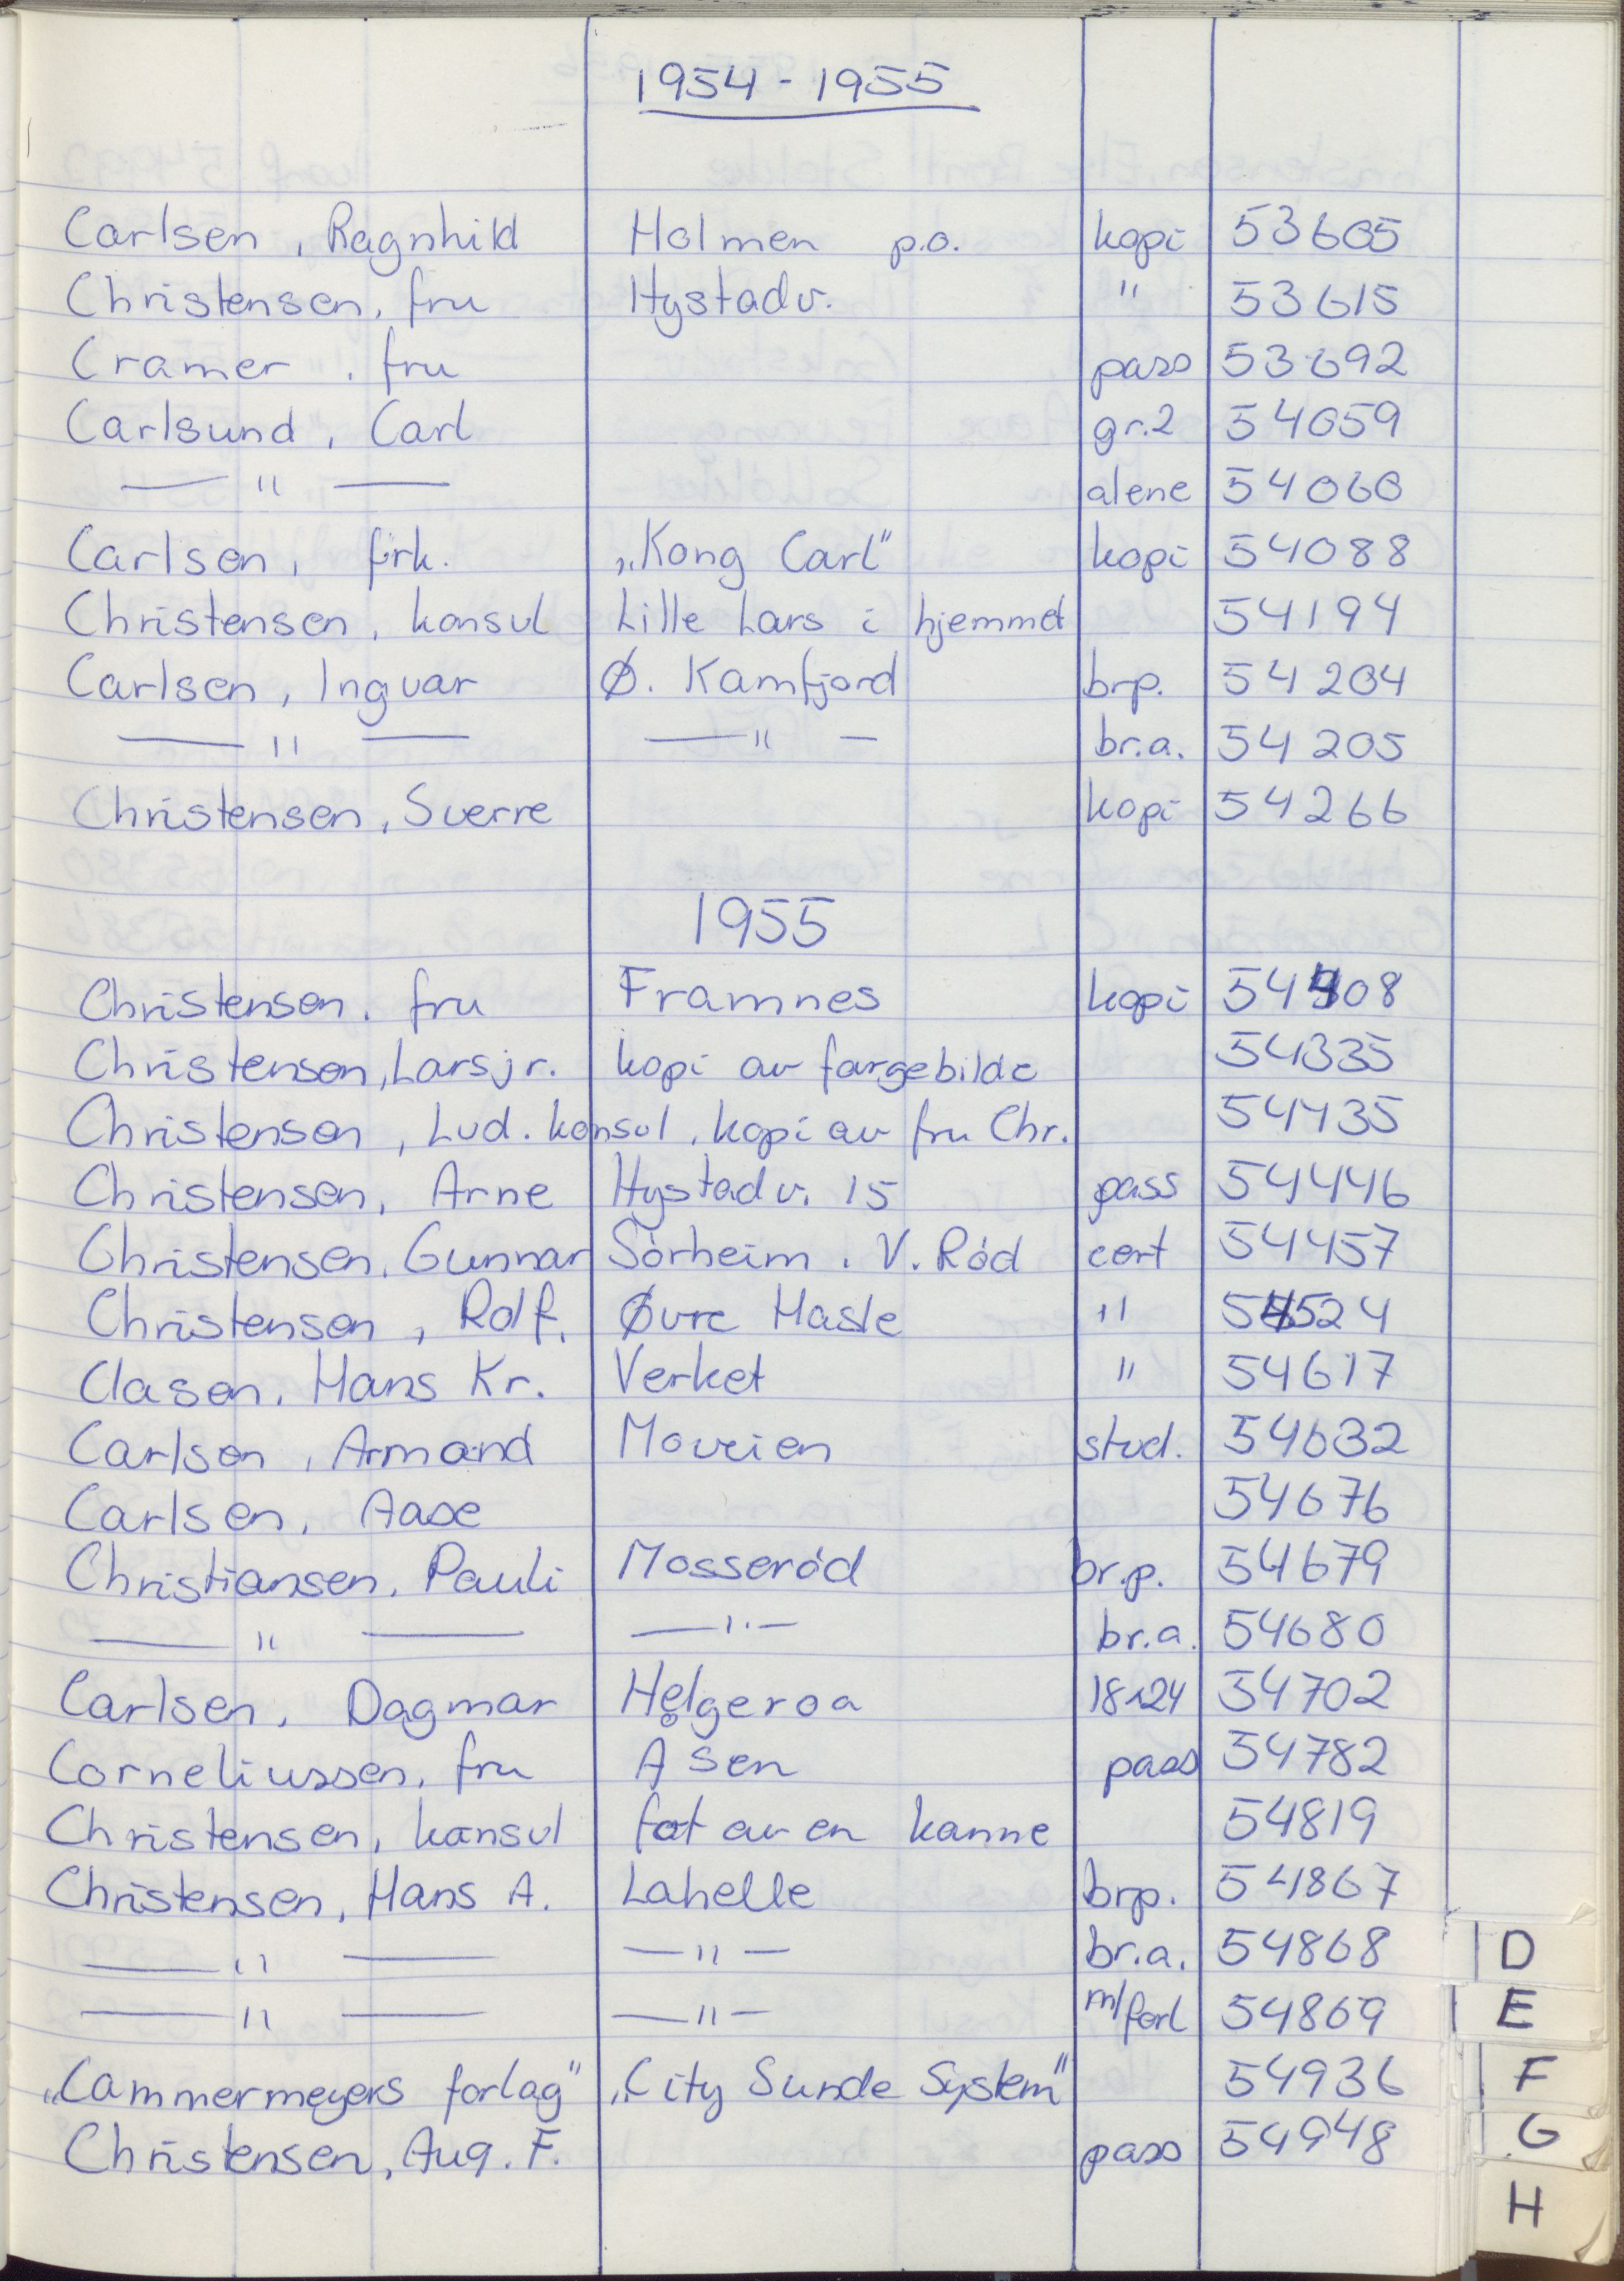 1954 - 1955
Carlsen, Ragnhild Holmen p.o. kopi 53605
Christensen, fru Hystadv. " 53615
Cramer, fru pass 53692
Carlsund, Carl gr.2 54059
— " — alene 54060
Carlsen, frk. „Kong Carl" kopi 54088
Christensen, konsul Lille Lars i hjemmet 54194
Carlsen, Ingvar Ø. Kamfjord brp. 54204
— " — — " — br.a. 54205
Christensen, Sverre kopi 54266
1955
Christensen, fru Framnes kopi 54408
Christensen, Lars jr. kopi av fargebilde 54335
Christensen, Lud. konsul, kopi av fru Chr. 54435
Christensen, Arne Hystadv. 15 pass 54446
Christensen, Gunnar Sörheim, V. Röd cert 54457
Christensen, Rolf. Øvre Hasle " 54524
Clasen, Hans Kr. Verket " 54617
Carlsen, Armand Moveien stud. 54632
Carlsen, Aase 54676
Christiansen, Pauli Mosseröd br.p. 54679
— " — — " — br.a. 54680
Carlsen, Dagmar Helgeroa 18x24 54702
Corneliussen, fru Åsen pass 54782
Christensen, konsul fot av en kanne 54819
Christensen, Hans A. Lahelle brp. 54867
— " — — " — br.a. 54868
— " — — " — m/forl 54869
„Cammermeyers forlag" „City Sunde System" 54936
Christensen, Aug. F. pass 54948
D
E
F
G
H